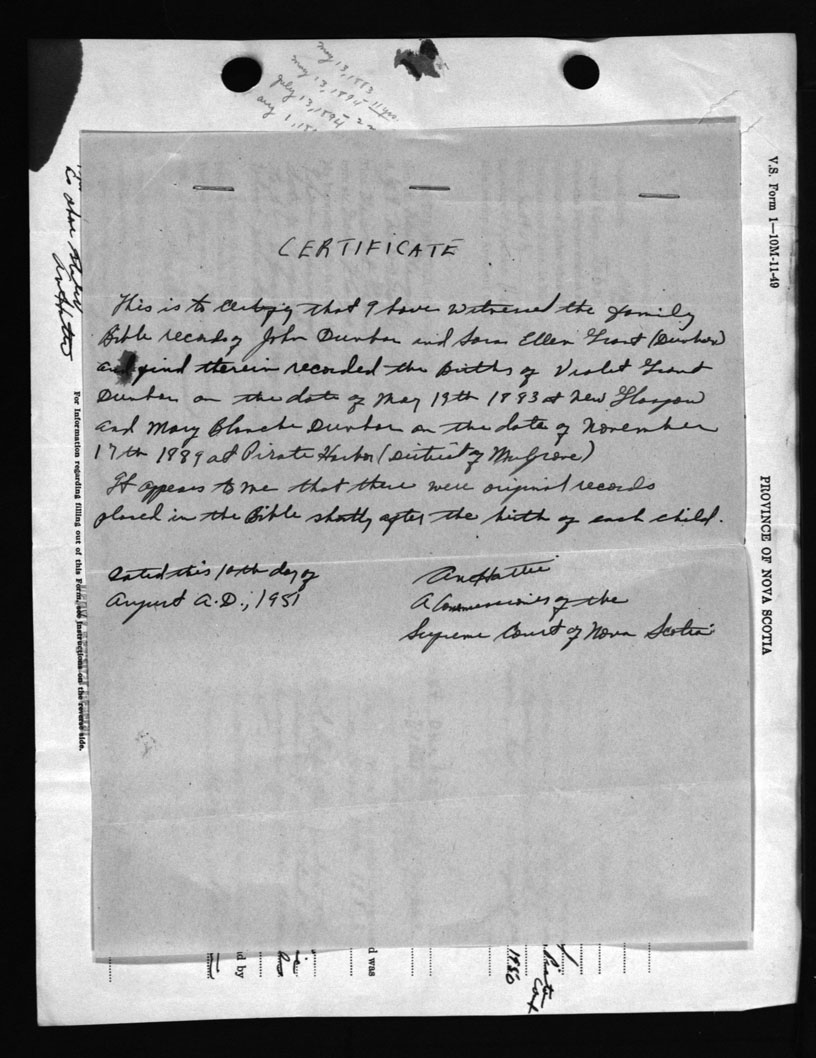 May 13, 1883
May 13, 1894 - 11 yrs.
July 13, 1894 - 2 m
Aug 1, 18
CERTIFICATE
This is to certify that I have witnessed the family
Bible records of John Dunbar and Sara Ellen Grant (Dunbar)
and find therein recorded the Births of Violet Grant
Dunbar on the date of May 19th 1883 at New Glasgow
and Mary Blanche Dunbar on the date of November
17th 1889 at Pirate Harbor (District of Mulgrave)
It appears to me that these were original records
placed in the Bible shortly after the birth of each child.
Dated this 10th day of
August A.D., 1951
Hattie
A Commissioner of the
Supreme Court of Nova Scotia
V.S. Form 1—10M-11-49
PROVINCE OF NOVA SCOTIA
For Information regarding filling out of this Form, see Instructions on the reverse side.
d by
d was
1950